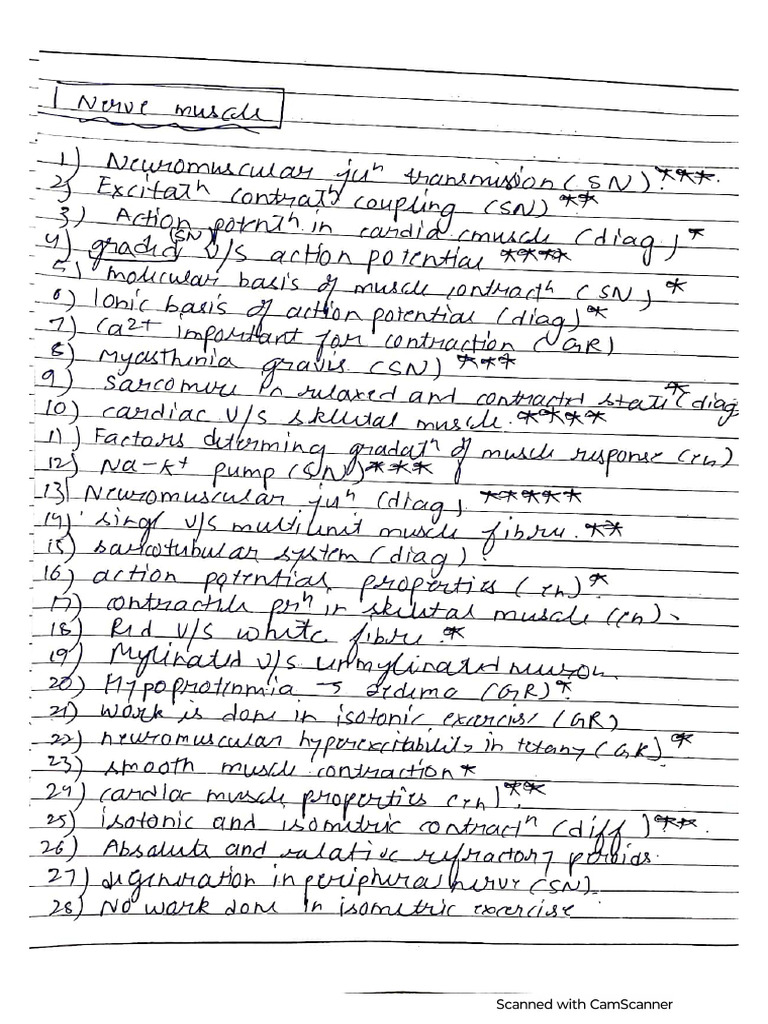 Nerve muscle
1) Neuromuscular juⁿ transmission (SN) ***.
2) Excitatⁿ contratⁿ coupling (SN) **
3) Action potentⁿ in cardiac muscle (diag) *
4) graded (SN) v/s action potential ****
5) molicular basis of muscle contractⁿ (SN) *
6) Ionic basis of action potential (diag) *
7) Ca2+ important for contraction (GR)
8) Myasthinia gravis (SN) ***
9) Sarcomere in relaxed and contracted state * (diag
10) cardiac v/s skeletal muscle. ****
11) Factors determing gradatⁿ of muscle response (en)
12) Na-K+ pump (SN) ***
13) Neuromuscular juⁿ (diag) *****
14) singl v/s multiunit muscle fibre. **
15) sarcotubular system (diag).
16) action potential properties (en) *
17) contractile prⁿ in skeletal muscle (en).
18) Red v/s white fibre. *
19) Mylinated v/s unmylinated neuron.
20) Hypoprotinmia → edema (GR) *
21) work is done in isotonic exercise (GR)
22) neuromuscular hyperexcitability in tetany (GR) *
23) smooth muscle contraction *
24) cardiac muscle properties (en) **
25) isotonic and isometric contractⁿ (diff) **.
26) Absolute and relative refractory peroids.
27) degeneration in peripheral nerve (SN).
28) No work done in isometric excercise
Scanned with CamScanner